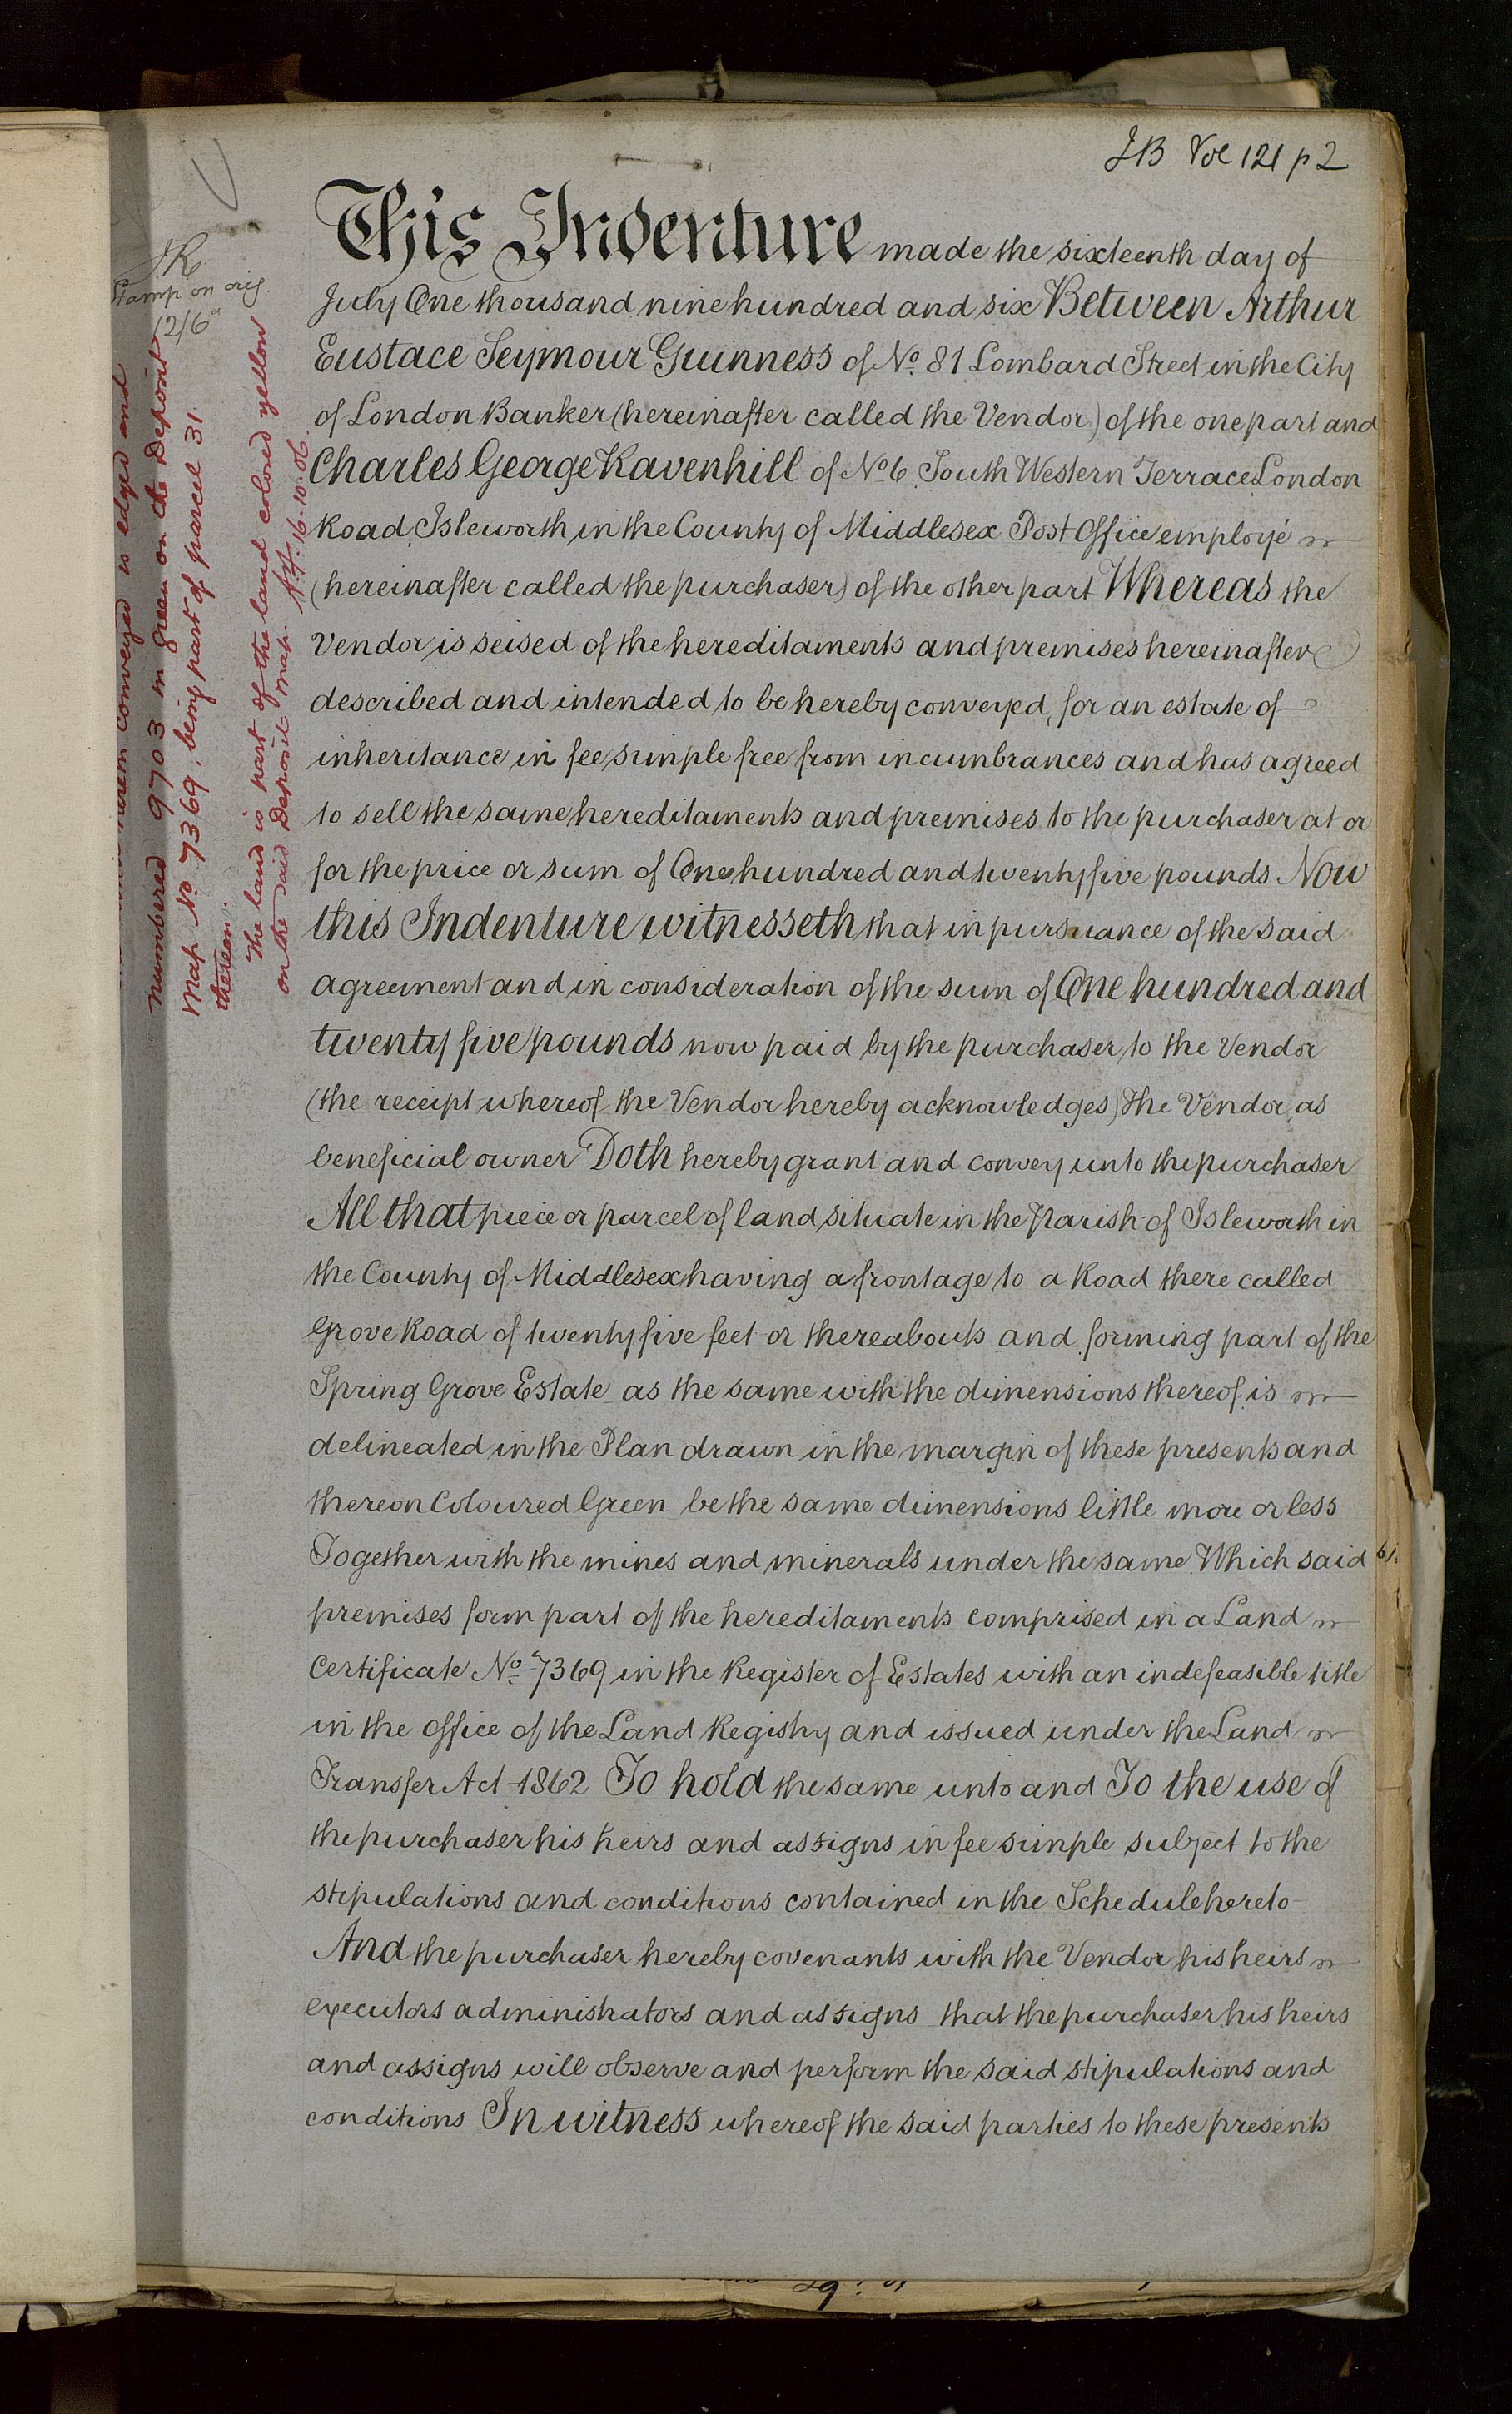 JB Vol 121 p 2
Stamp on orig.
12/6
This Indenture made the sixteenth day of
July One thousand nine hundred and six Between Arthur
Eustace Seymour Guinness of No. 81 Lombard Street in the City
of London Banker (hereinafter called the Vendor) of the one part and
Charles George Ravenhill of No 6 South Western Terrace London
Road Isleworth in the County of Middlesex Post Office employé
(hereinafter called the purchaser) of the other part Whereas the
Vendor is seised of the hereditaments and premises hereinafter
described and intended to be hereby conveyed, for an estate of
inheritance in fee simple free from incumbrances and has agreed
to sell the same hereditaments and premises to the purchaser at or
for the price or sum of One hundred and twenty five pounds Now
this Indenture witnesseth that in pursuance of the said
agreement and in consideration of the sum of One hundred and
twenty five pounds now paid by the purchaser to the Vendor
(the receipt whereof the Vendor hereby acknowledges) the Vendor as
beneficial owner Doth hereby grant and convey unto the purchaser
All that piece or parcel of land situate in the Parish of Isleworth in
the County of Middlesex having a frontage to a Road there called
Grove Road of twenty five feet or thereabouts and forming part of the
Spring Grove Estate as the same with the dimensions thereof is
delineated in the Plan drawn in the margin of these presents and
thereon Coloured Green be the same dimensions little more or less
Together with the mines and minerals under the same Which said
premises form part of the hereditaments comprised in a Land
Certificate No. 7369 in the Register of Estates with an indefeasible title
in the office of the Land Registry and issued under the Land
Transfer Act 1862 To hold the same unto and To the use of
the purchaser his heirs and assigns in fee simple subject to the
stipulations and conditions contained in the Schedule hereto
And the purchaser hereby covenants with the Vendor his heirs
executors administrators and assigns that the purchaser his heirs
and assigns will observe and perform the said stipulations and
conditions In witness whereof the said parties to these presents
herein conveyed is edged and
numbered 9703 in green on the Deposit
Map No. 7369, being part of parcel 31
thereon.
The land is part of the land colored yellow
on the said Deposit Map. 16.10.06